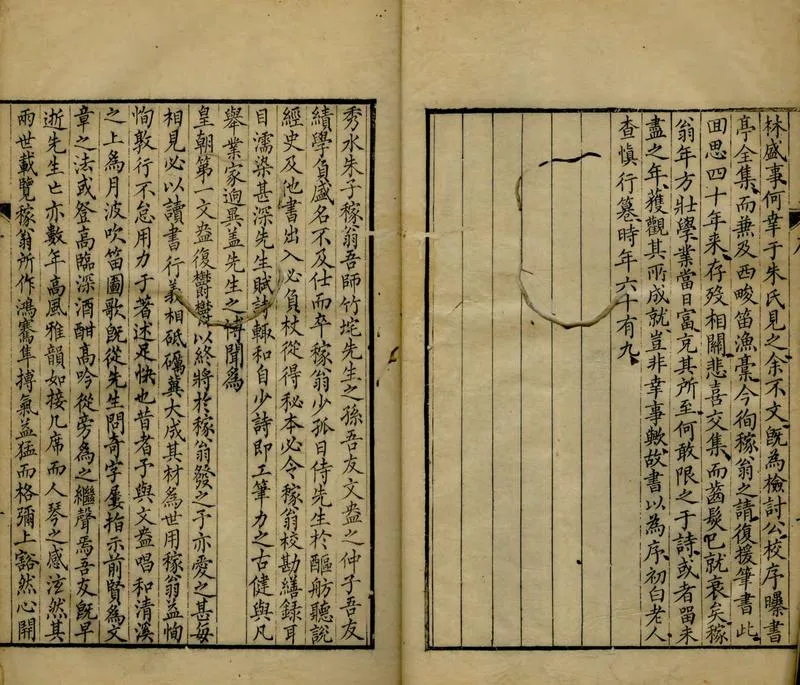 林盛事何幸于朱氏見之余不文旣為檢討公校序曝書
亭全集而兼及西畯笛漁稾今徇稼翁之請復援筆書此
囬思四十年来存歿相關悲喜交集而齒髮已就衰矣稼
翁年方壯學業當日富充其所至何敢限之于詩或者留未
盡之年獲觀其所成就豈非幸事歟故書以為序初白老人
查慎行篹時年六十有九
秀水朱子稼翁吾師竹垞先生之孫吾友文盎之仲子吾友
績學負盛名不及仕而卒稼翁少孤日侍先生於醧舫聽說
經史及他書出入必負杖從得秘本必令稼翁校勘繕錄耳
目濡染甚深先生賦詩輒和自少詩即工筆力之古健與凡
舉業家逈異盖先生之博聞為
皇朝第一文盎復鬱鬱以終將於稼翁發之予亦愛之甚每
相見必以讀書行義相砥礪冀大成其材為世用稼翁益恂
恂敦行不怠用力于著述足快也昔者予與文盎唱和清溪
之上為月波吹笛圖歌旣從先生問奇字屢指示前賢為文
章之法或登高臨深酒酣高吟從旁為之繼聲焉吾友旣早
逝先生亡亦數年高風雅韻如接几席而人琴之感泫然其
兩世載覽稼翁所作鴻騫隼搏氣益猛而格彌上豁然心開